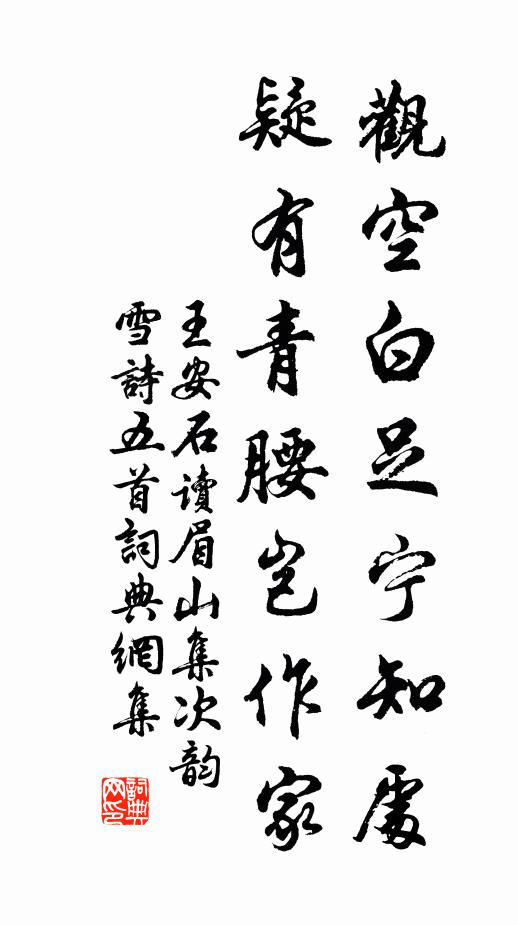 觀空白足宁知處
疑有青腰岂作家
王安石讀眉山集次韵
雪詩五首詞典網集
詞典網印